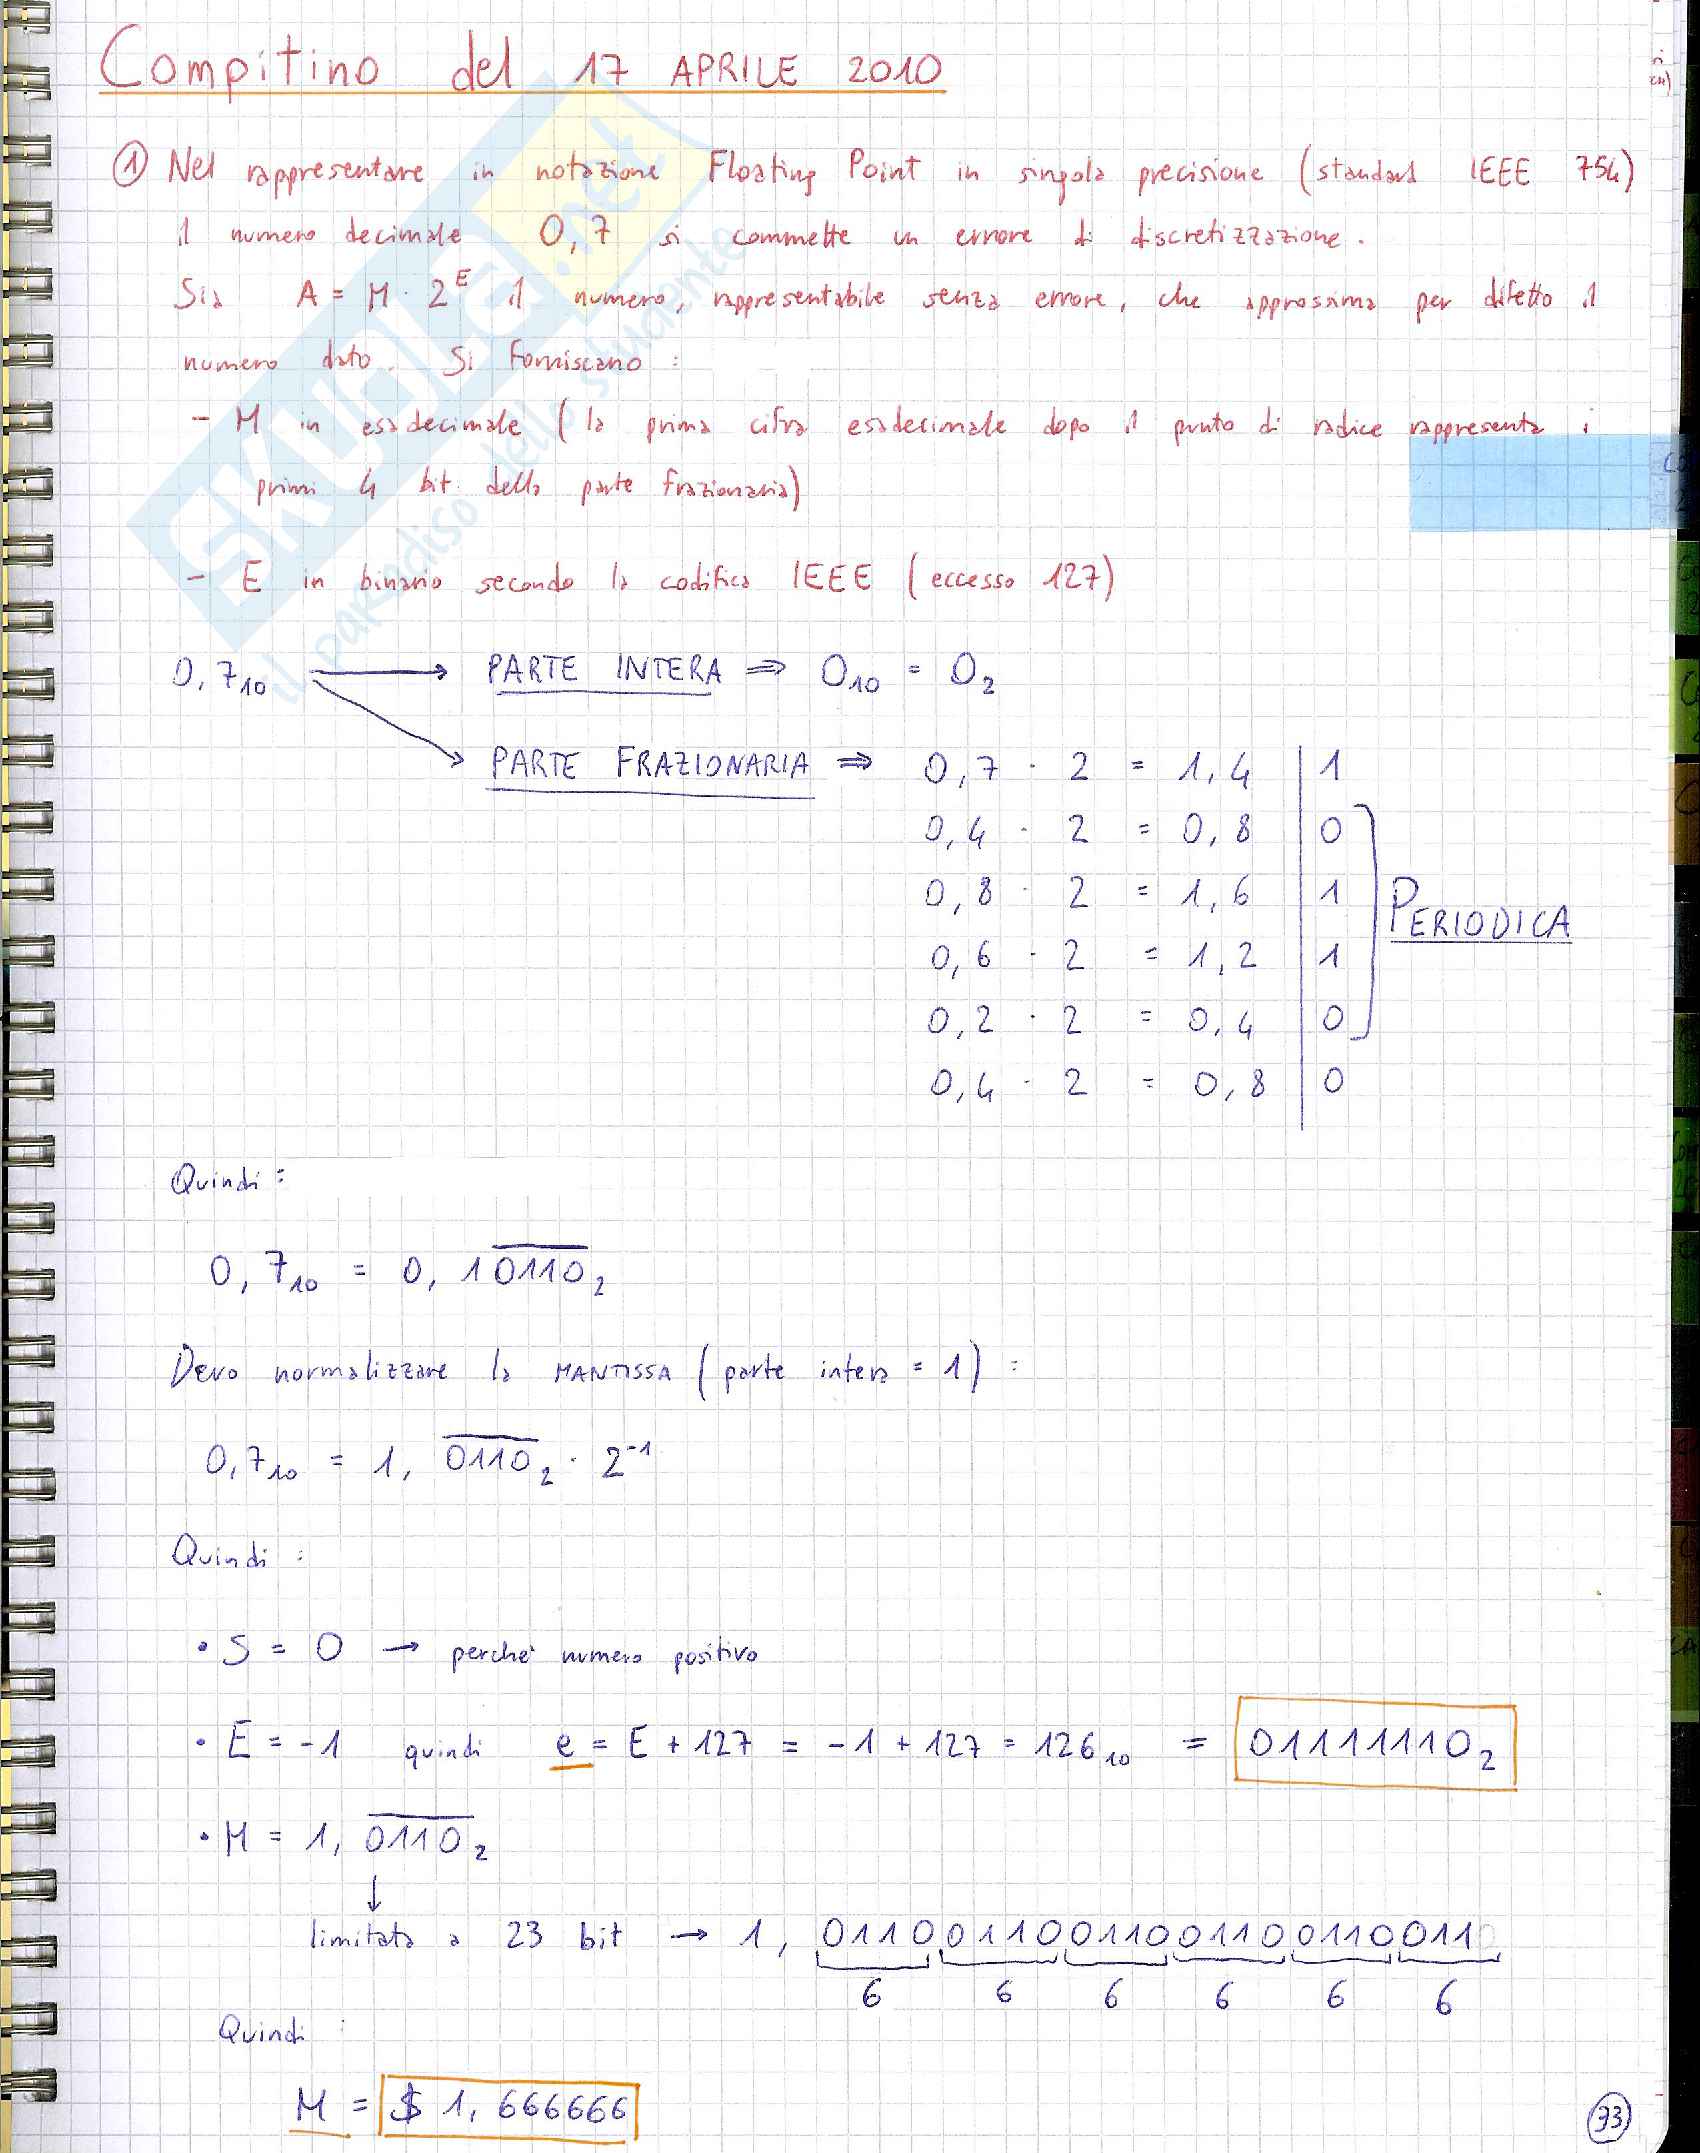 Compitino del 17 APRILE 2010
① Nel rappresentare in notazione Floating Point in singola precisione (standard IEEE 754)
il numero decimale 0,7 si commette un errore di discretizzazione.
Sia A = M · 2^E il numero, rappresentabile senza errore, che approssima per difetto il
numero dato. Si forniscano :
- M in esadecimale (la prima cifra esadecimale dopo il punto di radice rappresenta i
primi 4 bit della parte frazionaria)
- E in binario secondo la codifica IEEE (eccesso 127)
0,7₁₀ → PARTE INTERA ⇒ 0₁₀ = 0₂
→ PARTE FRAZIONARIA ⇒ 0,7 · 2 = 1,4 | 1
0,4 · 2 = 0,8 | 0
0,8 · 2 = 1,6 | 1
PERIODICA
0,6 · 2 = 1,2 | 1
0,2 · 2 = 0,4 | 0
0,4 · 2 = 0,8 | 0
Quindi :
0,7₁₀ = 0,1\overline{0110}₂
Devo normalizzare la MANTISSA (parte intera = 1) :
0,7₁₀ = 1,\overline{0110}₂ · 2⁻¹
Quindi :
• S = 0 → perchè numero positivo
• E = -1 quindi e = E + 127 = -1 + 127 = 126₁₀ = 01111110₂
• M = 1,\overline{0110}₂
↓
limitata a 23 bit → 1, 0110 0110 0110 0110 0110 0110
6 6 6 6 6 6
Quindi :
M = $ 1,666666
73
SKUOLA.net
il paradiso dello studente